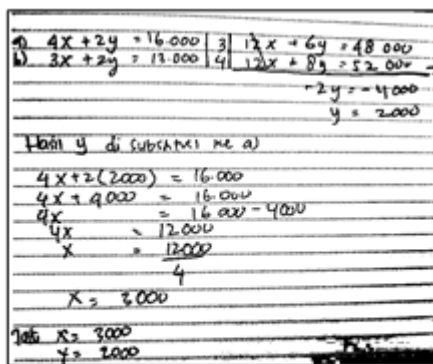 a) 4x + 2y = 16.000 | 3 | 12x + 6y = 48 000
b) 3x + 2y = 13.000 | 4 | 12x + 8y = 52.000 -
-2y = -4000
y = 2000
Hasil y di subs ke a)
4x + 2(2000) = 16.000
4x + 4000 = 16.000
4x = 16 000 - 4000
4x = 12.000
x = 12000
4
x = 3000
Jadi x = 3000
y = 2000